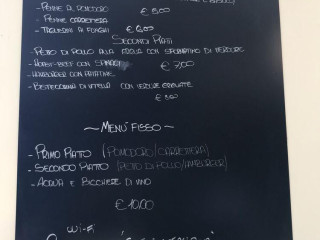 - PENNE AL POMODORO
- PENNE CARRETTIERA € 5.00
- TAGLIOLINI AI FUNGHI € 6.00
SECONDI PIATTI
- PETTO DI POLLO ALLA GRIGLIA CON SPINACINO DI VERDURE
- ROAST-BEEF CON SPINACI € 7.00
- HAMBURGER CON PATATINE
- BISTECCHINA DI VITELLA CON VERDURE GRIGLIATE
~ MENU' FISSO ~
- PRIMO PIATTO (POMODORO/CARRETTIERA)
- SECONDO PIATTO (PETTO DI POLLO/HAMBURGER)
- ACQUA E BICCHIERE DI VINO
€ 10.00
Wi-Fi